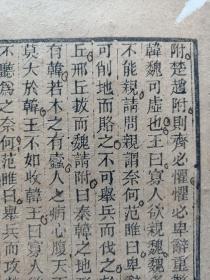 附楚趙附則齊必懼懼必卑辭重
韓魏可虛也王曰寡人欲親魏魏
不能親請問親謂奈何范雎曰卑
可削地而賂之不可舉兵而伐之
丘邢丘拔而魏請附曰秦韓之地
有韓若木之有蠹人之病心腹天
莫大於韓王不如收韓王曰寡人
不聽爲之奈何范雎曰舉兵而攻